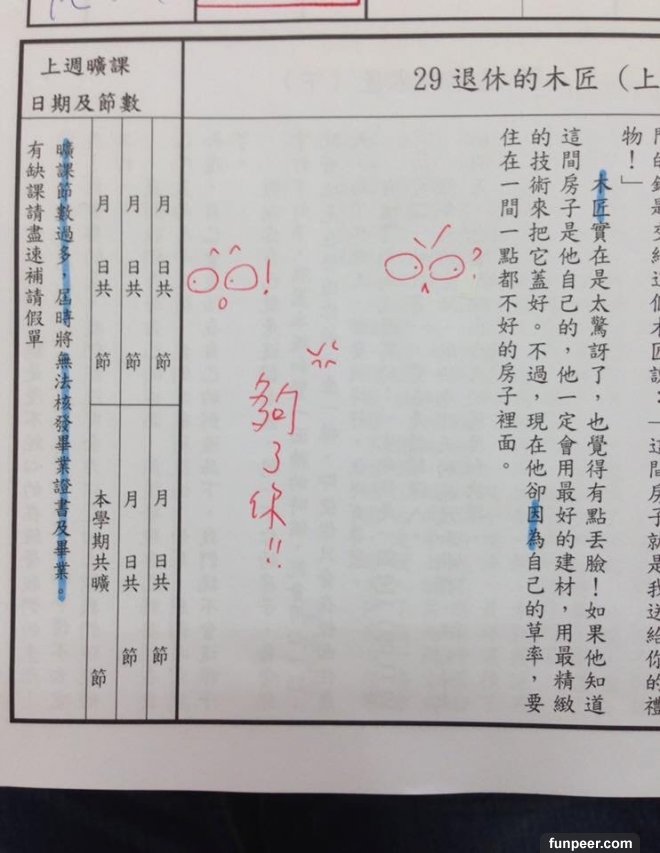 29 退休的木匠（上
這個木匠說：「這間房子就是我送給你的禮
物！」
木匠實在是太驚訝了，也覺得有點丟臉！如果他知道
這間房子是他自己的，他一定會用最好的建材，用最精緻
的技術來把它蓋好。不過，現在他卻因為自己的草率，要
住在一間一點都不好的房子裡面。
?
!
夠了你!!
上週曠課
日期及節數
月 日共 節
月 日共 節
月 日共 節
月 日共 節
月 日共 節
本學期共曠 節
曠課節數過多，屆時將無法核發畢業證書及畢業。
有缺課請盡速補請假單
funpeer.com